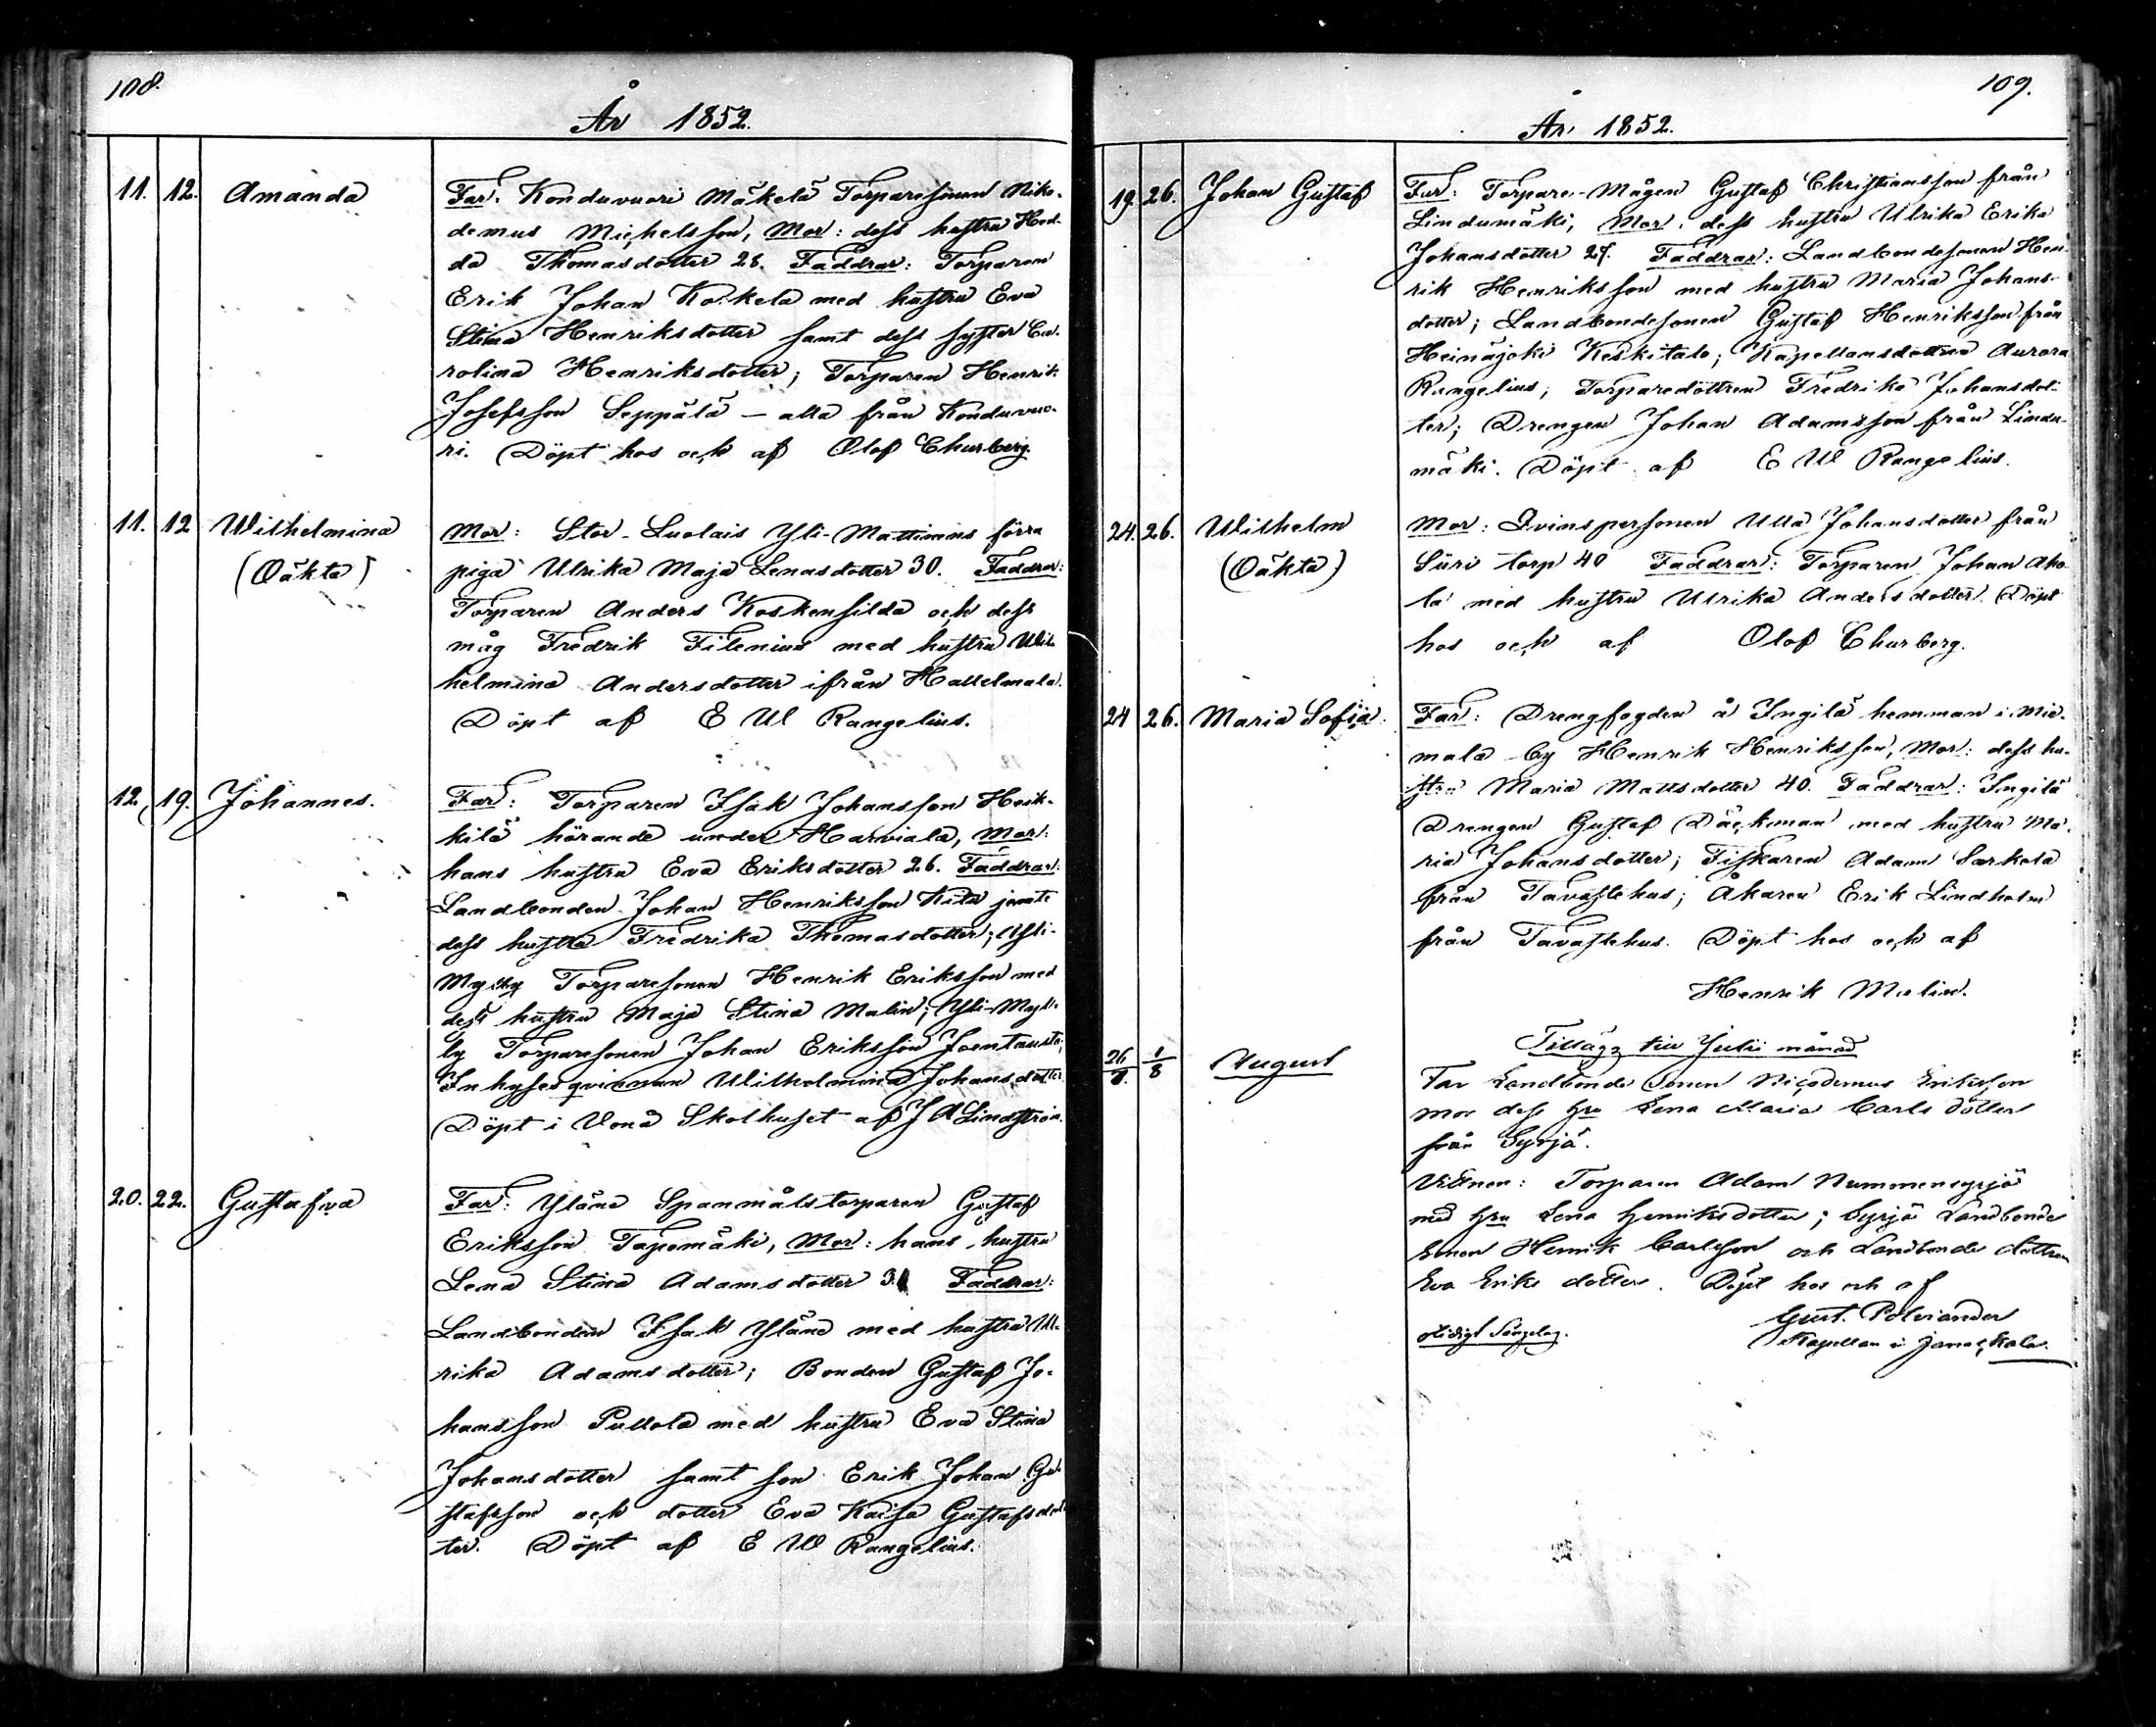 108.
År 1852.
11. 12. Amanda
Far: Konduvuori Mäkelä Torparesonen Niko-
demus Michelsson, Mor: dess hustru Hed-
da Thomasdotter 28. Faddrar: Torparen
Erik Johan Koskela med hustru Eva
Stina Henriksdotter samt dess syster Ca-
rolina Henriksdotter; Torparen Henrik
Josefsson Seppälä – alla från Konduvuo-
ri. Döpt hos och af Olof Churberg.
11. 12 Wilhelmina
(Oäkta)
Mor: Stor-Luolais Yli-Mattinens förra
piga Ulrika Maja Lenasdotter 30. Faddrar:
Torparen Anders Koskensilda och dess
måg Fredrik Filenius med hustru Wil-
helmina Andersdotter ifrån Hallelmala.
Döpt af E W Rangelius.
12. 19. Johannes.
Far: Torparen Isak Johansson Heik-
kilä hörande under Harviala, Mor:
hans hustru Eva Eriksdotter 26. Faddrar:
Landbonden Johan Henriksson Kita jemte
dess hustru Fredrika Thomasdotter; Yli-
Mylly Torparesonen Henrik Eriksson med
dess hustru Maja Stina Malin; Yli-Myl-
ly Torparesonen Johan Eriksson Joentausta;
Inhysesqvinnan Wilhelmina Johansdotter
Döpt i Vanå Skolhuset af J A Lindström.
20. 22. Gustafva
Far: Yläne Spanmålstorparen Gustaf
Eriksson Tapomäki, Mor: hans hustru
Lena Stina Adamsdotter 31 Faddrar:
Landbonden Isak Yläne med hustru Ul-
rika Adamsdotter; Bonden Gustaf Jo-
hansson Pullola med hustru Eva Stina
Johansdotter samt son Erik Johan Gu-
stafsson och dotter Eva Kaisa Gustafsdot-
ter. Döpt af E W Rangelius.
109.
År 1852.
19. 26. Johan Gustaf
Far: Torpare-Mågen Gustaf Christiansson från
Lindumäki, Mor: dess hustru Ulrika Erika
Johansdotter 27. Faddrar: Landbondesonen Hen-
rik Henriksson med hustru Maria Johans-
dotter; Landbondesonen Gustaf Henriksson från
Heinäjoki Keskitalo; Kapellansdottren Aurora
Rangelius; Torparedottren Fredrika Johansdot-
ter; Drengen Johan Adamsson från Lindu-
mäki. Döpt af E W Rangelius.
24. 26. Wilhelm
(Oäkta)
Mor: Qvinspersonen Ulla Johansdotter från
Süri torp 40 Faddrar: Torparen Johan Aho-
la med hustru Ulrika Andersdotter. Döpt
hos och af Olof Churberg.
24 26. Maria Sofia.
Far: Drengfogden å Ingilä hemman i Mie-
mala by Henrik Henriksson, Mor: dess hu-
stru Maria Mattsdotter 40. Faddrar: Ingilä
Drengen Gustaf Däckman med hustru Ma-
ria Johansdotter; Fiskaren Adam Sarkola
från Tavastehus; Åkaren Erik Lindholm
från Tavastehus. Döpt hos och af
Henrik Malin.
Tillägg till Julii månad
26/7. 1/8 August
Far Landbonde Sonen Nicodemus Eriksson
mor dess hru Lena Maria Carls dotter
från Syrjä.
Vittnen: Torparen Adam Nummensyrjä
med hru Lena Henriksdotter; Syrjä Landbonde
sonen Henrik Carlsson och Landbonde dottren
Eva Eriks dotter. Döpt hos och af
Gust. Polviander
Kapellan i Janakkala.